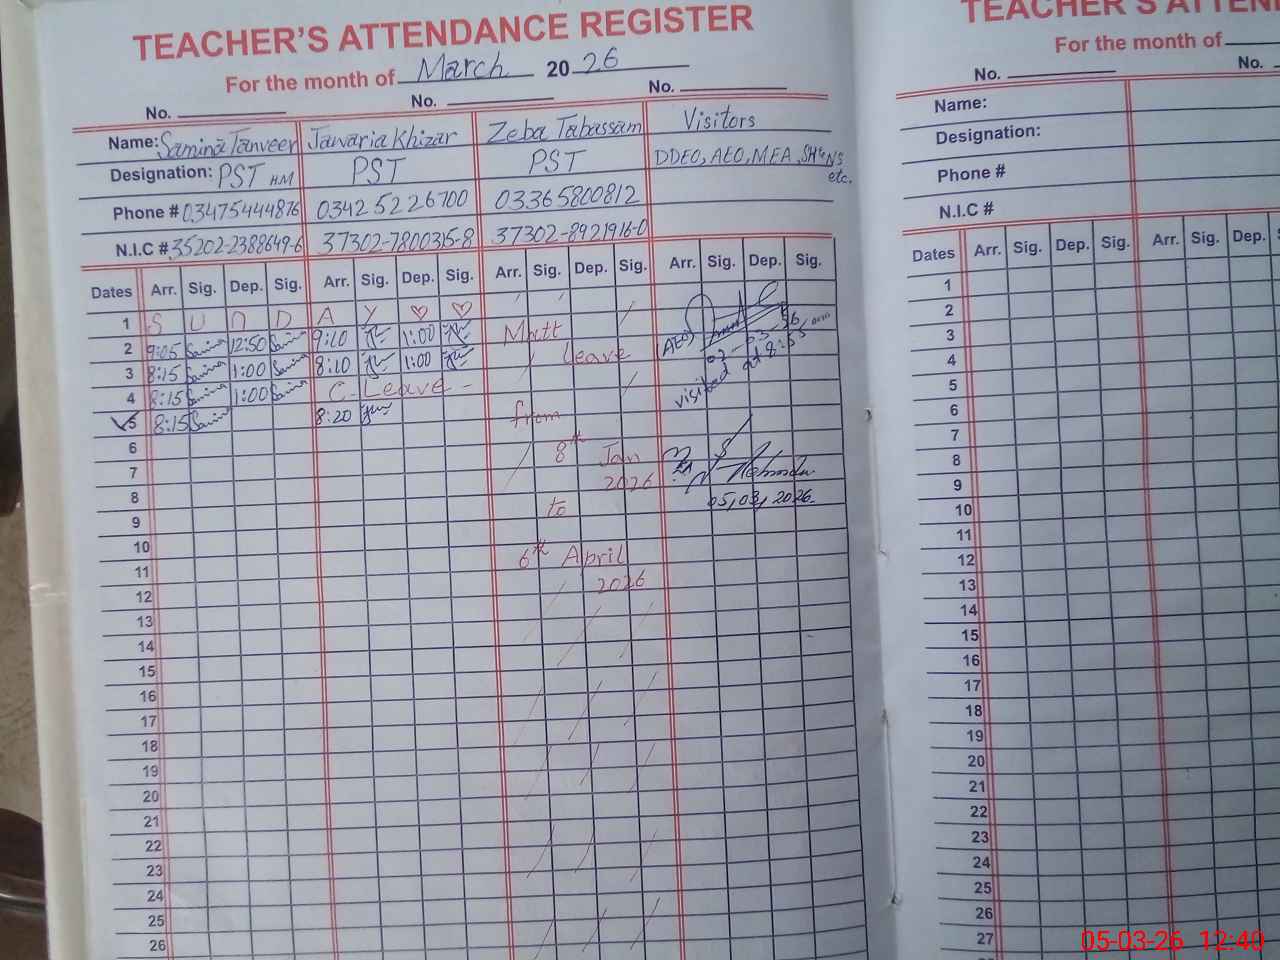 TEACHER'S ATTENDANCE REGISTER
For the month of March 2026
No. No. No.
Name: Samina Tanveer Jawaria Khizar Zeba Tabassam Visitors
Designation: PST HM PST PST DDEO, AEO, MEA, etc.
Phone # 03475444876 0342 5226700 03365800812
N.I.C # 35202-2388649-6 37302-7800315-8 37302-8921916-0
Dates Arr. Sig. Dep. Sig. Arr. Sig. Dep. Sig. Arr. Sig. Dep. Sig. Arr. Sig. Dep. Sig.
1 S U N D A Y ♡ ♡
2 9:05 12:50 9:10 1:00
3 8:15 1:00 8:10 1:00 leave
4 8:15 1:00 C. Leave -
5 8:15 8:20 from
6 8th Jan
7 2026
8 to
9
10 6th April
11 2026
12
13
14
15
16
17
18
19
20
21
22
23
24
25
26
AEO
visited at 8:55 am
05,03,2026.
TEACHER'S ATTEN
For the month of
No. No.
Name:
Designation:
Phone #
N.I.C #
Dates Arr. Sig. Dep. Sig. Arr. Sig. Dep.
1
2
3
4
5
6
7
8
9
10
11
12
13
14
15
16
17
18
19
20
21
22
23
24
25
26
27
05-03-26 12:40